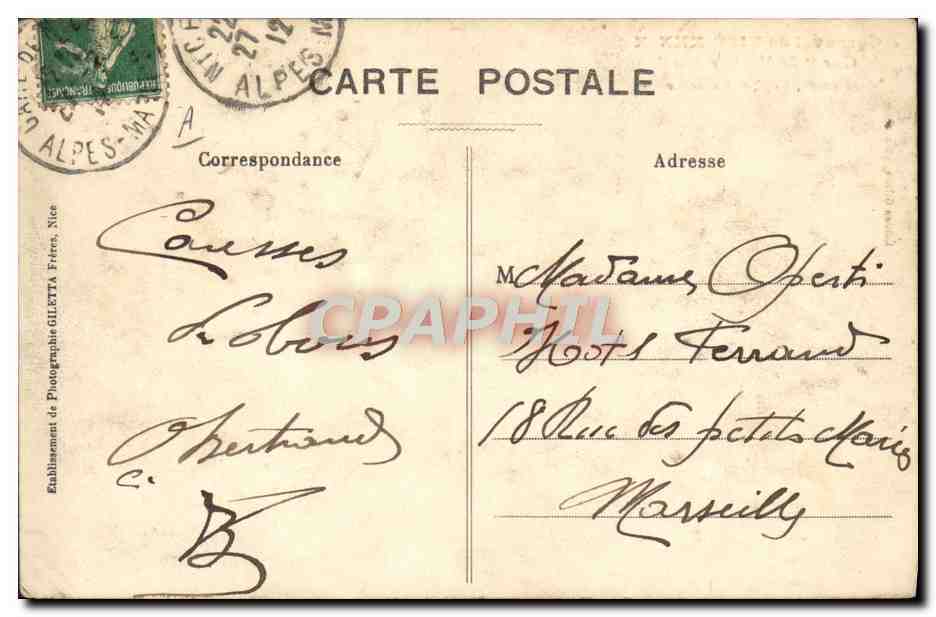 RÉPUBLIQUE FRANÇAISE
ALPES-MA
NICE
22
27
12
ALPES-M
CARTE POSTALE
A
Correspondance
Adresse
Etablissement de Photographie GILETTA Frères, Nice
Causses
Bertrand
C.
M Madame Operti
Hôtel Ferrand
18 Rue des petits Maries
Marseille
CPAPHIL